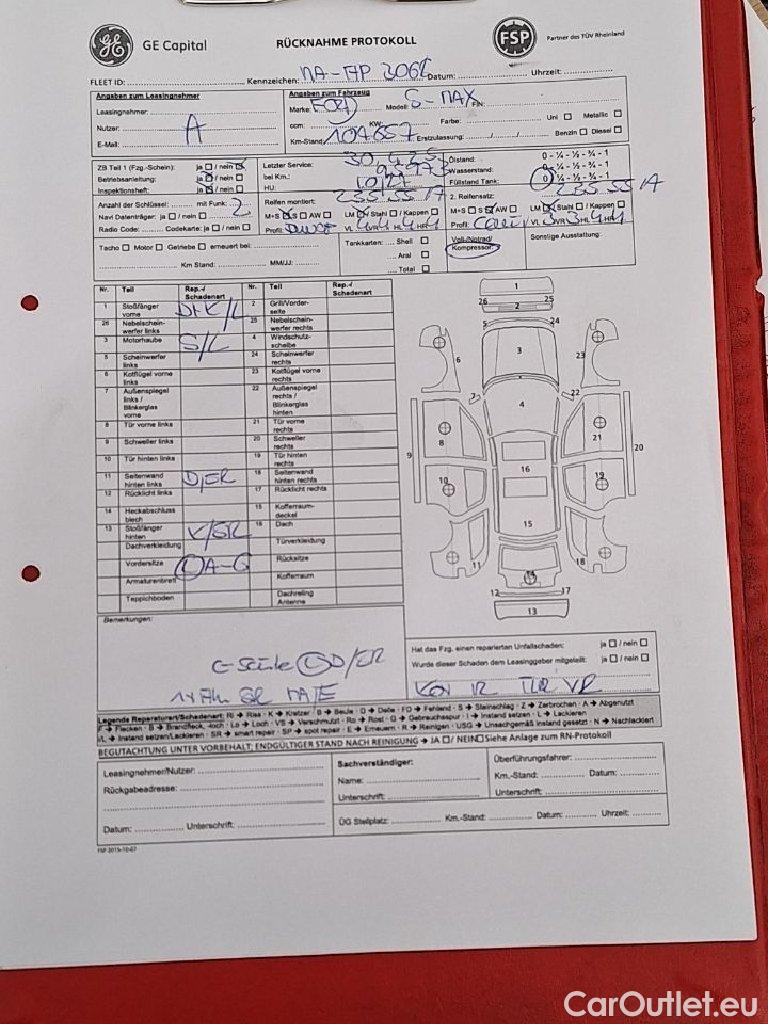 GE Capital
RÜCKNAHME PROTOKOLL
FSP
Partner des TÜV Rheinland
FLEET ID: Kennzeichen: Datum: Uhrzeit:
Angaben zum Leasingnehmer
Leasingnehmer:
Nutzer: A
E-Mail:
Angaben zum Fahrzeug
Marke: Ford Modell: S-MAX FIN:
ccm: KW: Farbe: Uni Metallic
Km-Stand: 104657 Erstzulassung: Benzin Diesel
ZB Teil 1 (Fzg.-Schein): ja / nein
Betriebsanleitung: ja / nein
Inspektionsheft: ja / nein
Letzter Service:
bei Km.:
HU:
Ölstand: 0 - ¼ - ½ - ¾ - 1
Wasserstand: 0 - ¼ - ½ - ¾ - 1
Füllstand Tank: 0 - ¼ - ½ - ¾ - 1
Anzahl der Schlüssel: mit Funk: 2
Navi Datenträger: ja / nein
Radio Code: Codekarte: ja / nein
Reifen montiert: 235 55 17
M+S S AW LM / Stahl / Kappen
Profil: VL VR HL HR
2. Reifensatz:
M+S S AW LM / Stahl / Kappen
Profil: VL VR HL HR
Tacho Motor Getriebe erneuert bei:
Km Stand: MM/JJ:
Tankkarten: Shell
Aral
Total
Voll-/Notrad/
Kompressor:
Sonstige Ausstattung:
Nr. Teil Rep.-/ Schadenart Nr. Teil Rep.-/ Schadenart
1 Stoßfänger vorne 2 Grill/Vorderseite
26 Nebelscheinwerfer links 25 Nebelscheinwerfer rechts
3 Motorhaube S/L 4 Windschutzscheibe
5 Scheinwerfer links 24 Scheinwerfer rechts
6 Kotflügel vorne links 23 Kotflügel vorne rechts
7 Außenspiegel links / Blinkerglas vorne 22 Außenspiegel rechts / Blinkerglas hinten
8 Tür vorne links 21 Tür vorne rechts
9 Schweller links 20 Schweller rechts
10 Tür hinten links 19 Tür hinten rechts
11 Seitenwand hinten links D/SR 18 Seitenwand hinten rechts
12 Rücklicht links 17 Rücklicht rechts
14 Heckabschlussblech 15 Kofferraumdeckel
13 Stoßfänger hinten K/SR 16 Dach
Dachverkleidung Türverkleidung
Vordersitze L A-G Rücksitze
Armaturenbrett Kofferraum
Teppichboden Dachreling Antenne
1
26 25
2
24
3
6 23
7 22
4
8 21
9 20
10 19
16
15
11 18
14
12 17
13
Bemerkungen:
C-Säule L D/SR
Hat das Fzg. einen reparierten Unfallschaden: ja / nein
Wurde dieser Schaden dem Leasinggeber mitgeteilt: ja / nein
TÜR VR
Legende Reperaturart/Schadenart: RI → Riss - K → Kratzer / B → Beule / D → Delle / FD → Fehlend - S → Steinschlag - Z → Zerbrochen - A → Abgenutzt
F → Flecken - B → Brandfleck, -loch - Lo → Loch - VS → Verschmutzt - Ro → Rost - G → Gebrauchsspur - I → Instand setzen - L → Lackieren
I/L → Instand setzen/Lackieren - SR → smart repair - SP → spot repair - E → Erneuern - R → Reinigen - USG → Unsachgemäß instand gesetzt - N → Nachlackiert
BEGUTACHTUNG UNTER VORBEHALT; ENDGÜLTIGER STAND NACH REINIGUNG → JA / NEIN Siehe Anlage zum RN-Protokoll
Leasingnehmer/Nutzer:
Rückgabeadresse:
Datum: Unterschrift:
Sachverständiger:
Name:
Unterschrift:
Überführungsfahrer:
Km.-Stand: Datum:
Unterschrift:
ÜG Stellplatz: Km.-Stand: Datum: Uhrzeit:
CarOutlet.eu